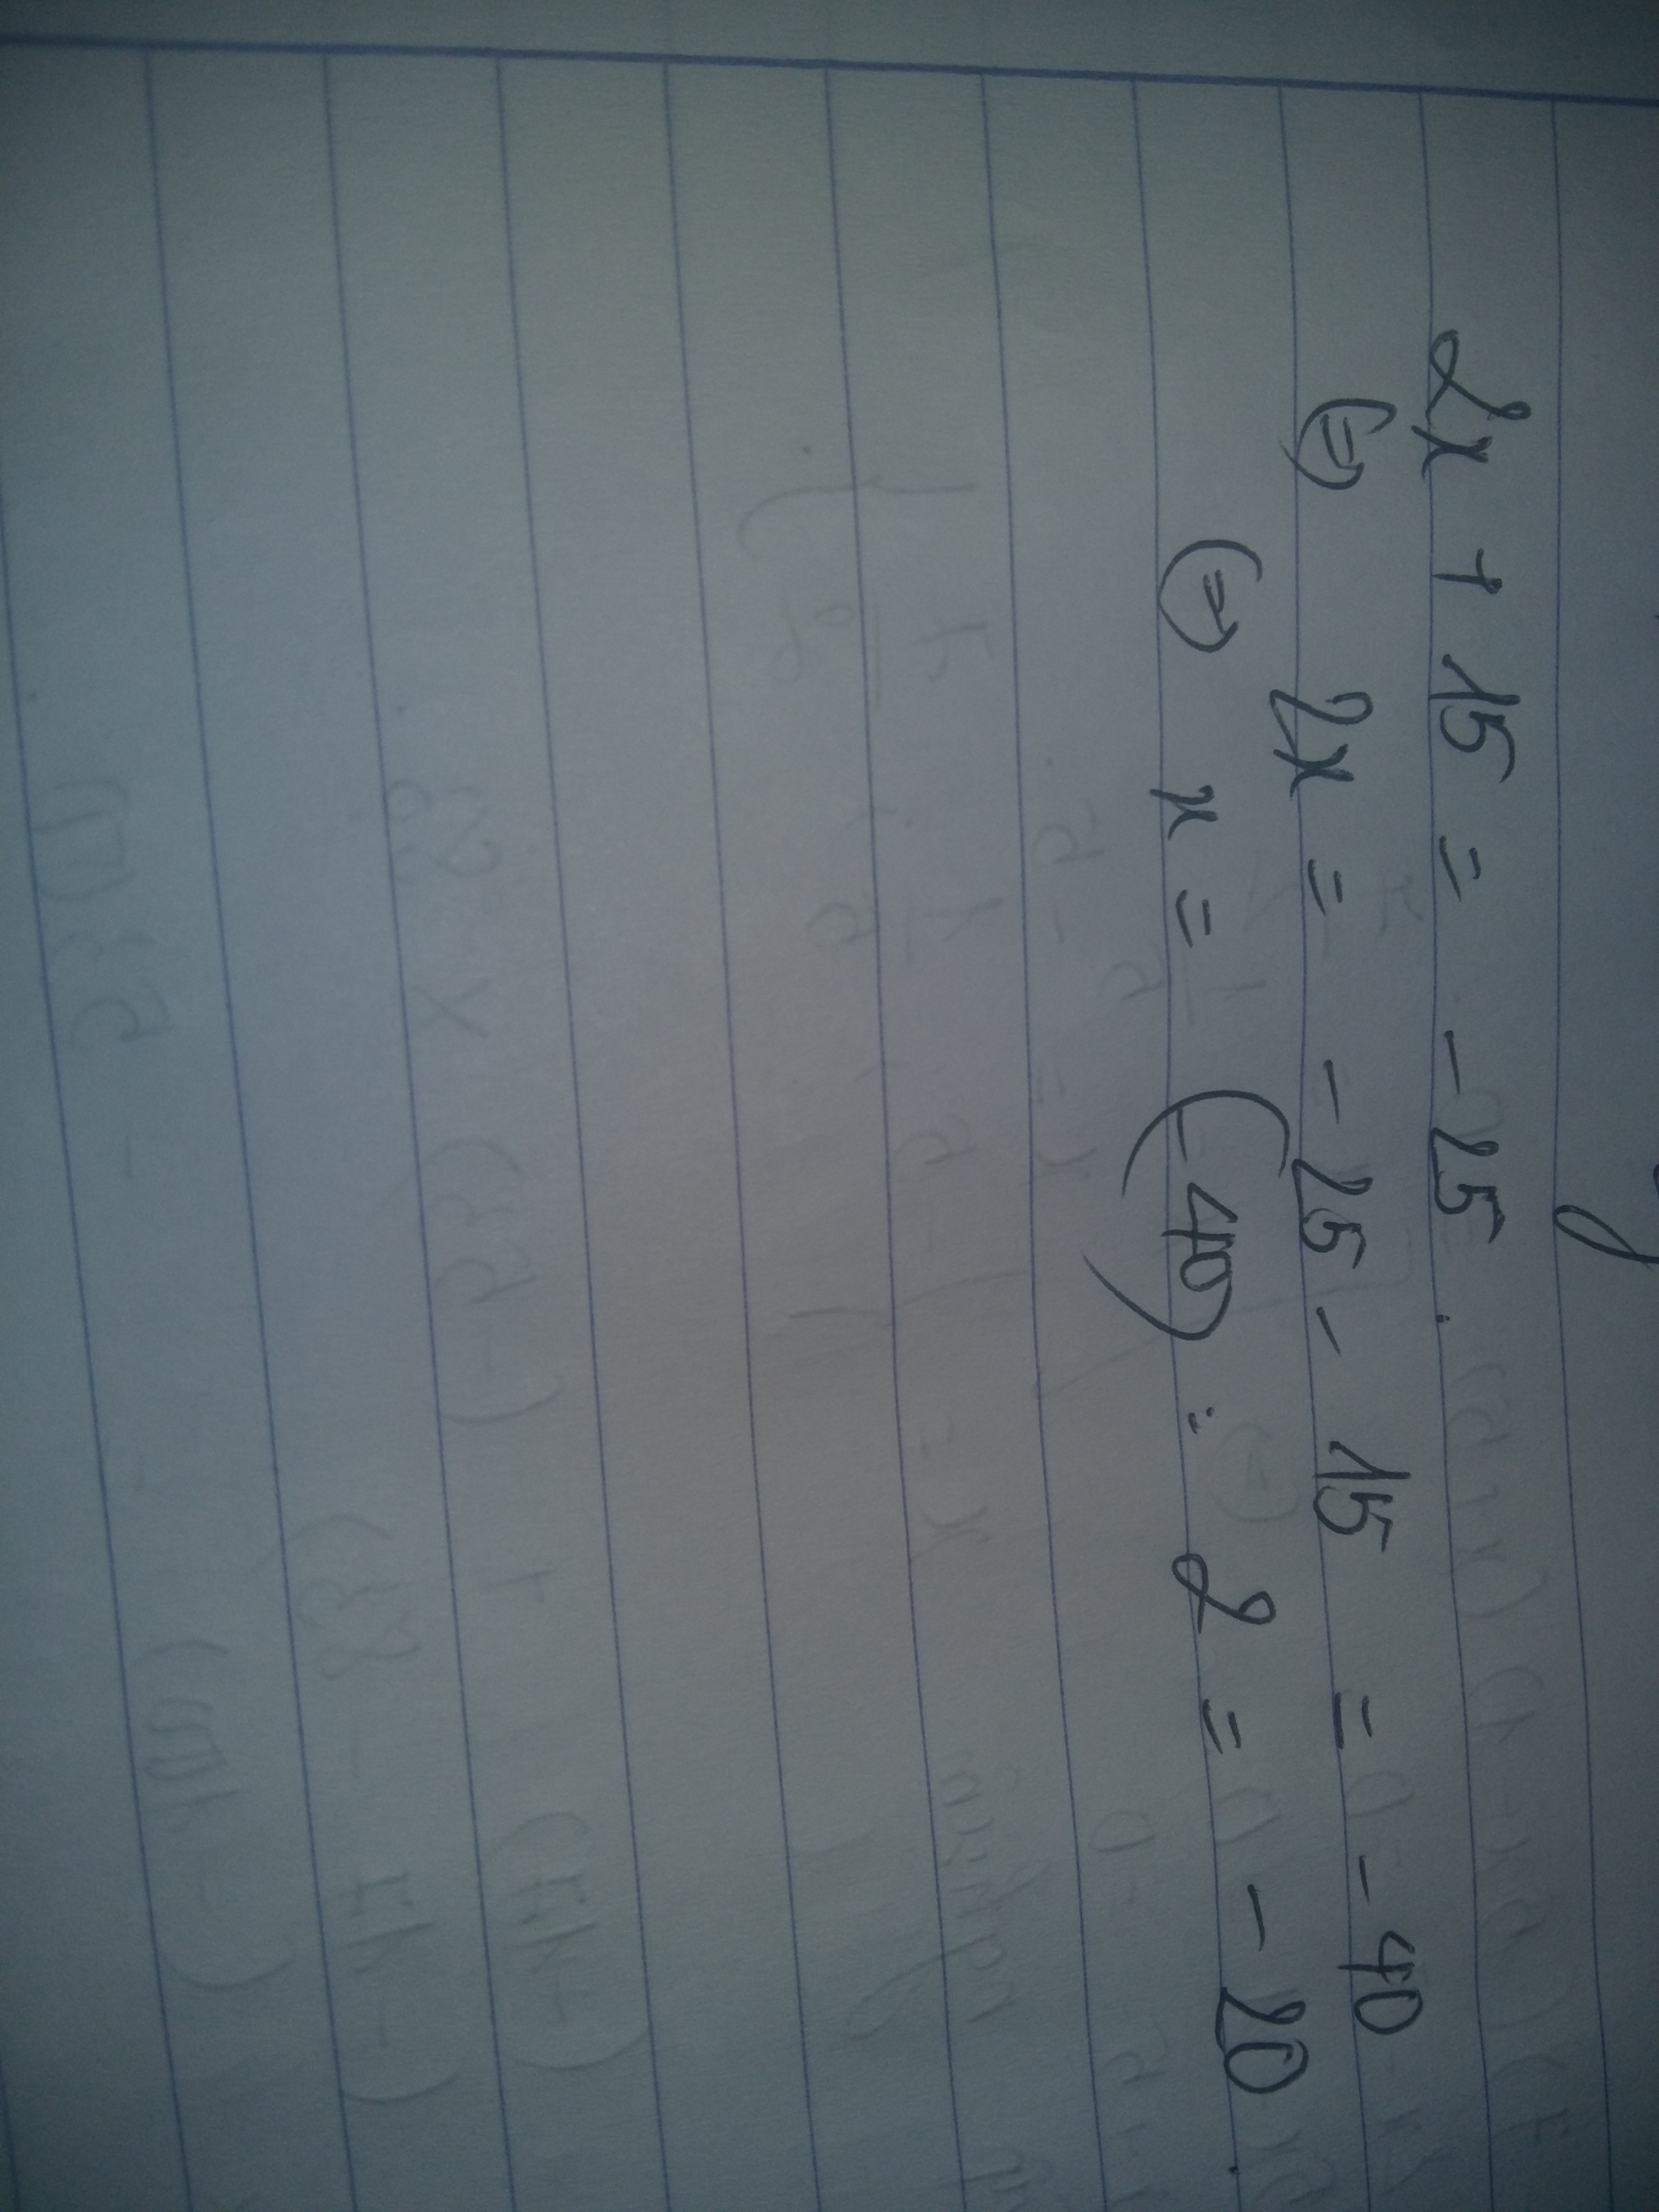 2x + 15 = - 25 .
(=) 2x = - 25 - 15 = - 40
(=) x = (- 40) : 2 = - 20 .